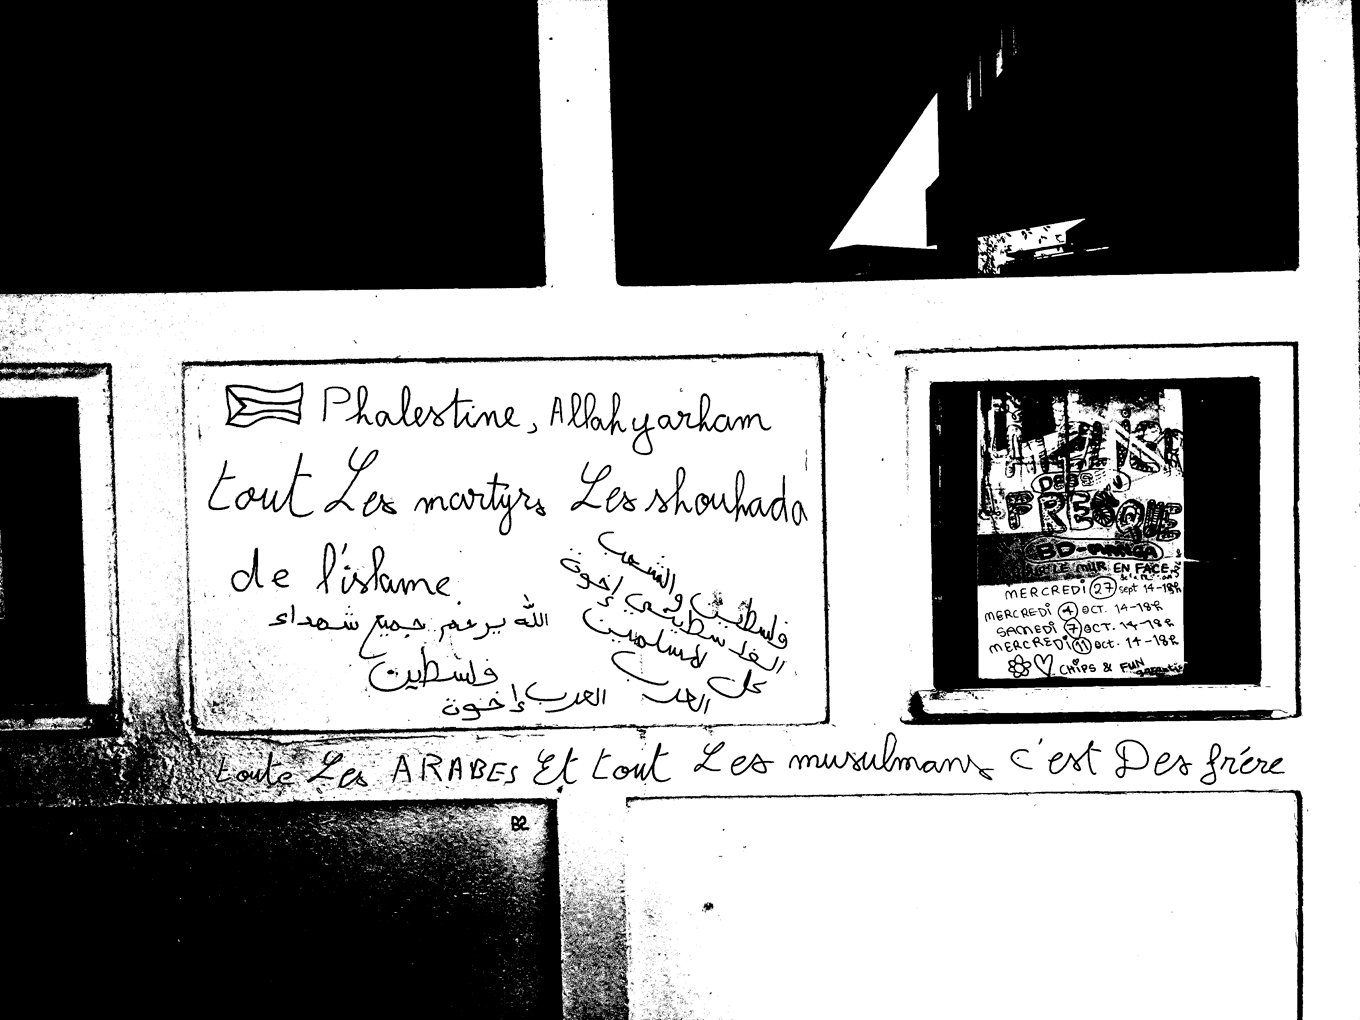 Phalestine, Allah yarham
tout Les martyrs Les shouhada
de l'islame
الله يرحم جميع شهداء
فلسطين
العرب إخوة
فلسطين والشعب
الفلسطيني إخوة
كل المسلمين
العرب
toute Les ARABES Et tout Les musulmans c'est Des frére
B2
FRESQUE
LE MUR EN FACE
MERCREDI 27 sept 14-18h
MERCREDI 4 OCT. 14-18h
SAMEDI 7 OCT. 14-18h
MERCREDI 11 oct. 14-18h
CHIPS & FUN